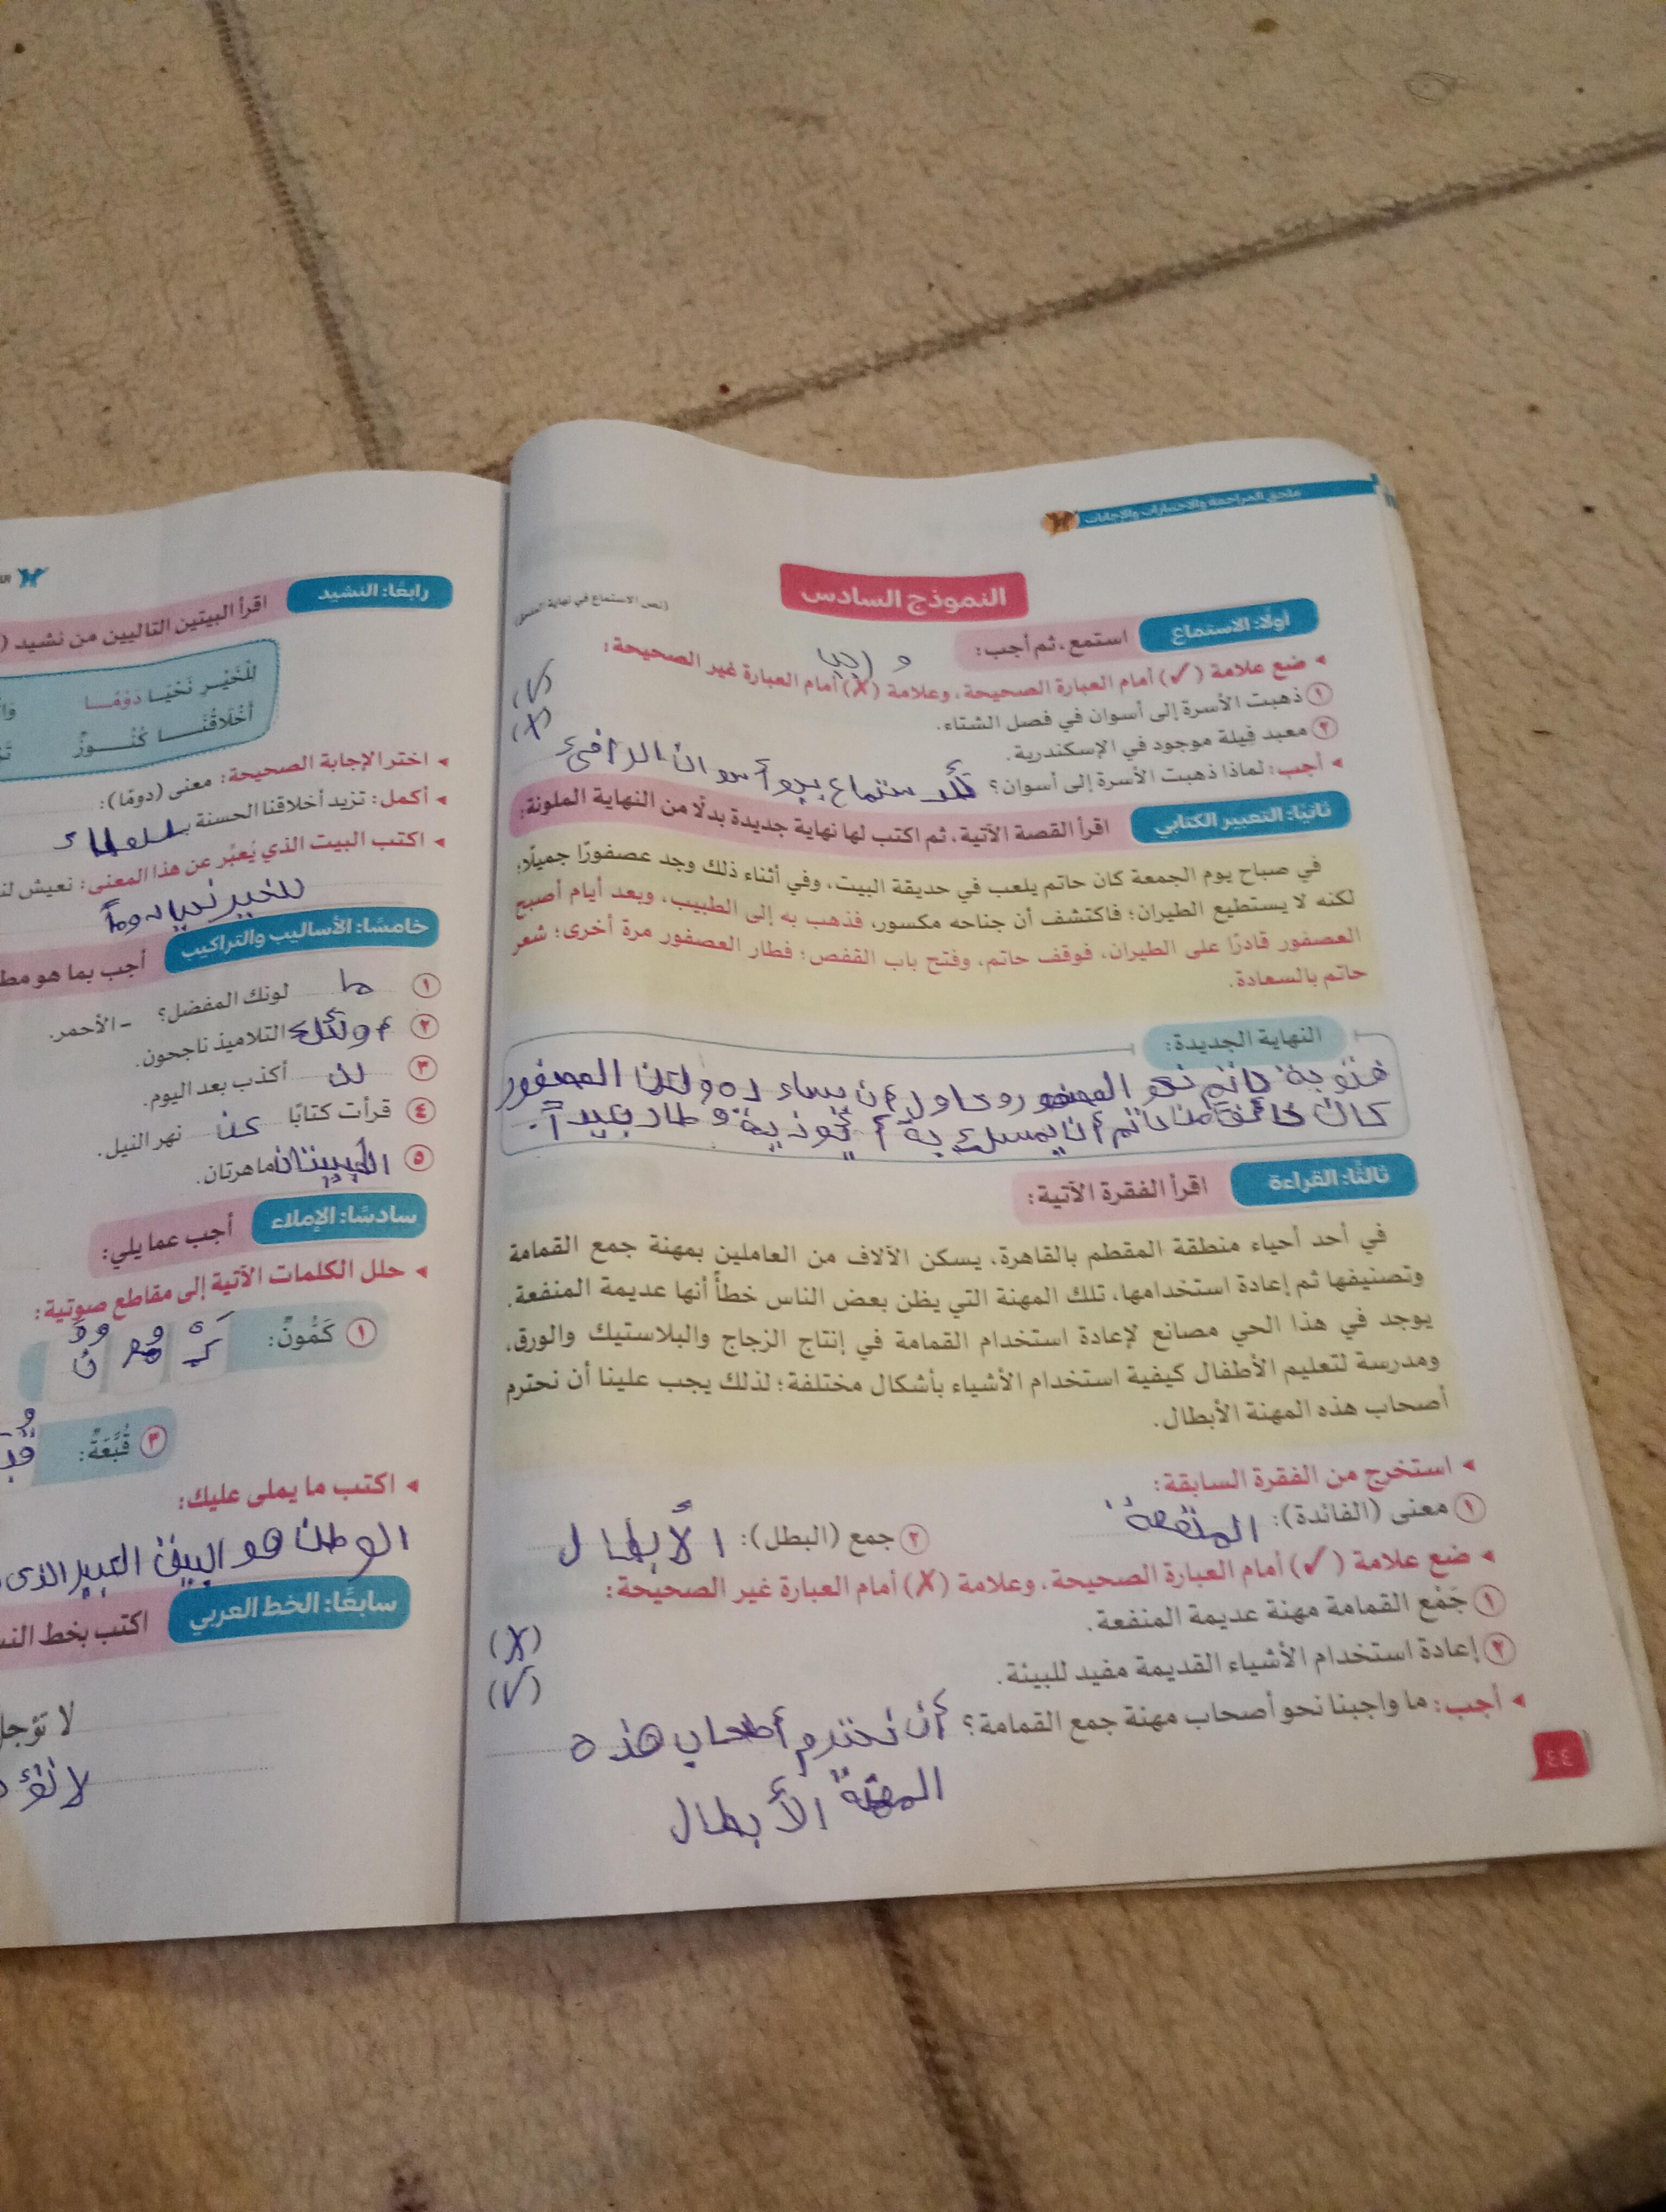 ملحق المراجعة والاختبارات والإجابات
النموذج السادس
(نص الاستماع في نهاية الملحق)
أولًا: الاستماع استمع، ثم أجب:
ضع علامة (✓) أمام العبارة الصحيحة، وعلامة (✗) أمام العبارة غير الصحيحة:
١ ذهبت الأسرة إلى أسوان في فصل الشتاء. (✓)
٢ معبد فيلة موجود في الإسكندرية. (✗)
أجب: لماذا ذهبت الأسرة إلى أسوان؟ بجو أسوان الدافئ
ثانيًا: التعبير الكتابي اقرأ القصة الآتية، ثم اكتب لها نهاية جديدة بدلًا من النهاية الملونة:
في صباح يوم الجمعة كان حاتم يلعب في حديقة البيت، وفي أثناء ذلك وجد عصفورًا جميلًا؛
لكنه لا يستطيع الطيران؛ فاكتشف أن جناحه مكسور، فذهب به إلى الطبيب، وبعد أيام أصبح
العصفور قادرًا على الطيران، فوقف حاتم، وفتح باب القفص؛ فطار العصفور مرة أخرى؛ شعر
حاتم بالسعادة.
النهاية الجديدة:
حاتم نحو العصفور وحاول أن يساعده ولكن العصفور
كان خائف من حاتم أن يمسك به أو وطار بعيداً.
ثالثًا: القراءة اقرأ الفقرة الآتية:
في أحد أحياء منطقة المقطم بالقاهرة، يسكن الآلاف من العاملين بمهنة جمع القمامة
وتصنيفها ثم إعادة استخدامها، تلك المهنة التي يظن بعض الناس خطأً أنها عديمة المنفعة.
يوجد في هذا الحي مصانع لإعادة استخدام القمامة في إنتاج الزجاج والبلاستيك والورق،
ومدرسة لتعليم الأطفال كيفية استخدام الأشياء بأشكال مختلفة؛ لذلك يجب علينا أن نحترم
أصحاب هذه المهنة الأبطال.
استخرج من الفقرة السابقة:
١ معنى (الفائدة): المنفعة ٢ جمع (البطل): الأبطال
ضع علامة (✓) أمام العبارة الصحيحة، وعلامة (✗) أمام العبارة غير الصحيحة:
١ جَمْع القمامة مهنة عديمة المنفعة. (✗)
٢ إعادة استخدام الأشياء القديمة مفيد للبيئة. (✓)
أجب: ما واجبنا نحو أصحاب مهنة جمع القمامة؟ أن نحترم أصحاب هذه
المهنة الأبطال
٤٤
رابعًا: النشيد اقرأ البيتين التاليين من نشيد (
لِلْخَيْرِ نَحْيَا دَوْمًا
أَخْلَاقُنَا كُنُوزٌ
اختر الإجابة الصحيحة: معنى (دومًا):
أكمل: تزيد أخلاقنا الحسنة بـ
اكتب البيت الذي يُعبِّر عن هذا المعنى: نعيش
للخير نحيا دوماً
خامسًا: الأساليب والتراكيب أجب بما هو
١ ما لونك المفضل؟ - الأحمر.
٢ أولئك التلاميذ ناجحون.
٣ لن أكذب بعد اليوم.
٤ قرأت كتابًا عن نهر النيل.
٥ الطبيبتان ماهرتان.
سادسًا: الإملاء أجب عما يلي:
حلل الكلمات الآتية إلى مقاطع صوتية:
١ كَمُّونٌ:
٣ قُبَّعَةٌ:
اكتب ما يملى عليك:
الوطن هو البيت الكبير الذى
سابعًا: الخط العربي اكتب بخط